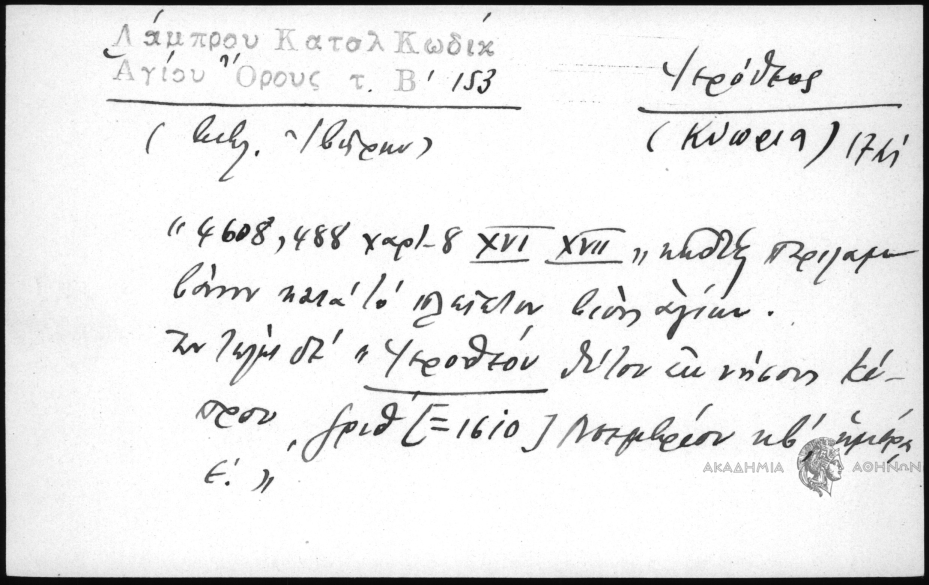 Λάμπρου Καταλ Κωδικ
Ἁγίου Ὄρους τ. Β' 153
Ἱερόθεος
(Βιβλ. Ἰβήρων)
(Κύπρια) 17
"4608, 488 χαρτ. 8 XVI XVII " κώδιξ περιλαμ
βάνων κατὰ τὸ πλεῖστον βίους ἁγίων.
Ἐν τέλει δέ " Ἱεροθέου θύτου ἐκ νήσου Κύ-
πρου, [=1610] Νοεμβρίου κβ', ἡμέρᾳ
ε'. "
ΑΚΑΔΗΜΙΑ ΑΘΗΝΩΝ